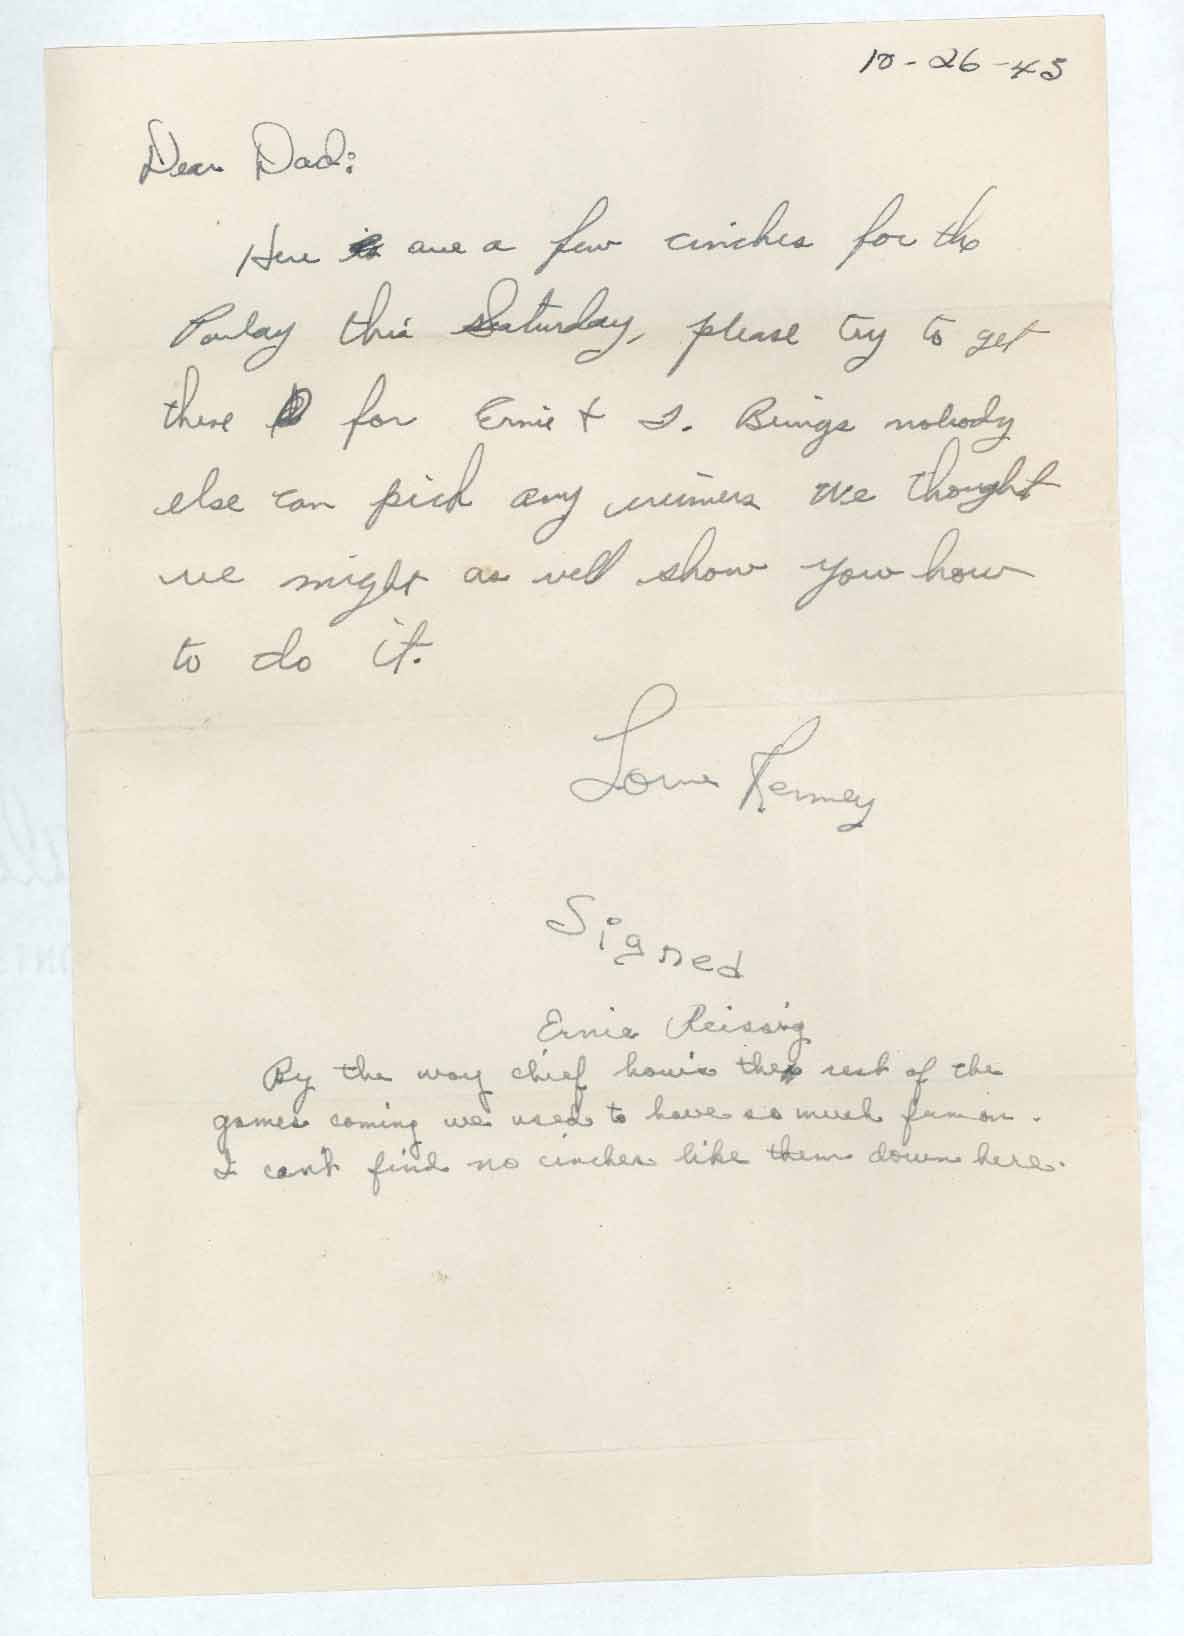 10-26-45
Dear Dad:
Here are a few cinches for the
Parlay this Saturday, please try to get
these for Ernie & I. Beings nobody
else can pick any winners we thought
we might as well show you how
to do it.
Kenney
Signed
Ernie Reissig
By the way chief how's the rest of the
games coming we used to have so much fun on.
I can't find no cinches like them down here.